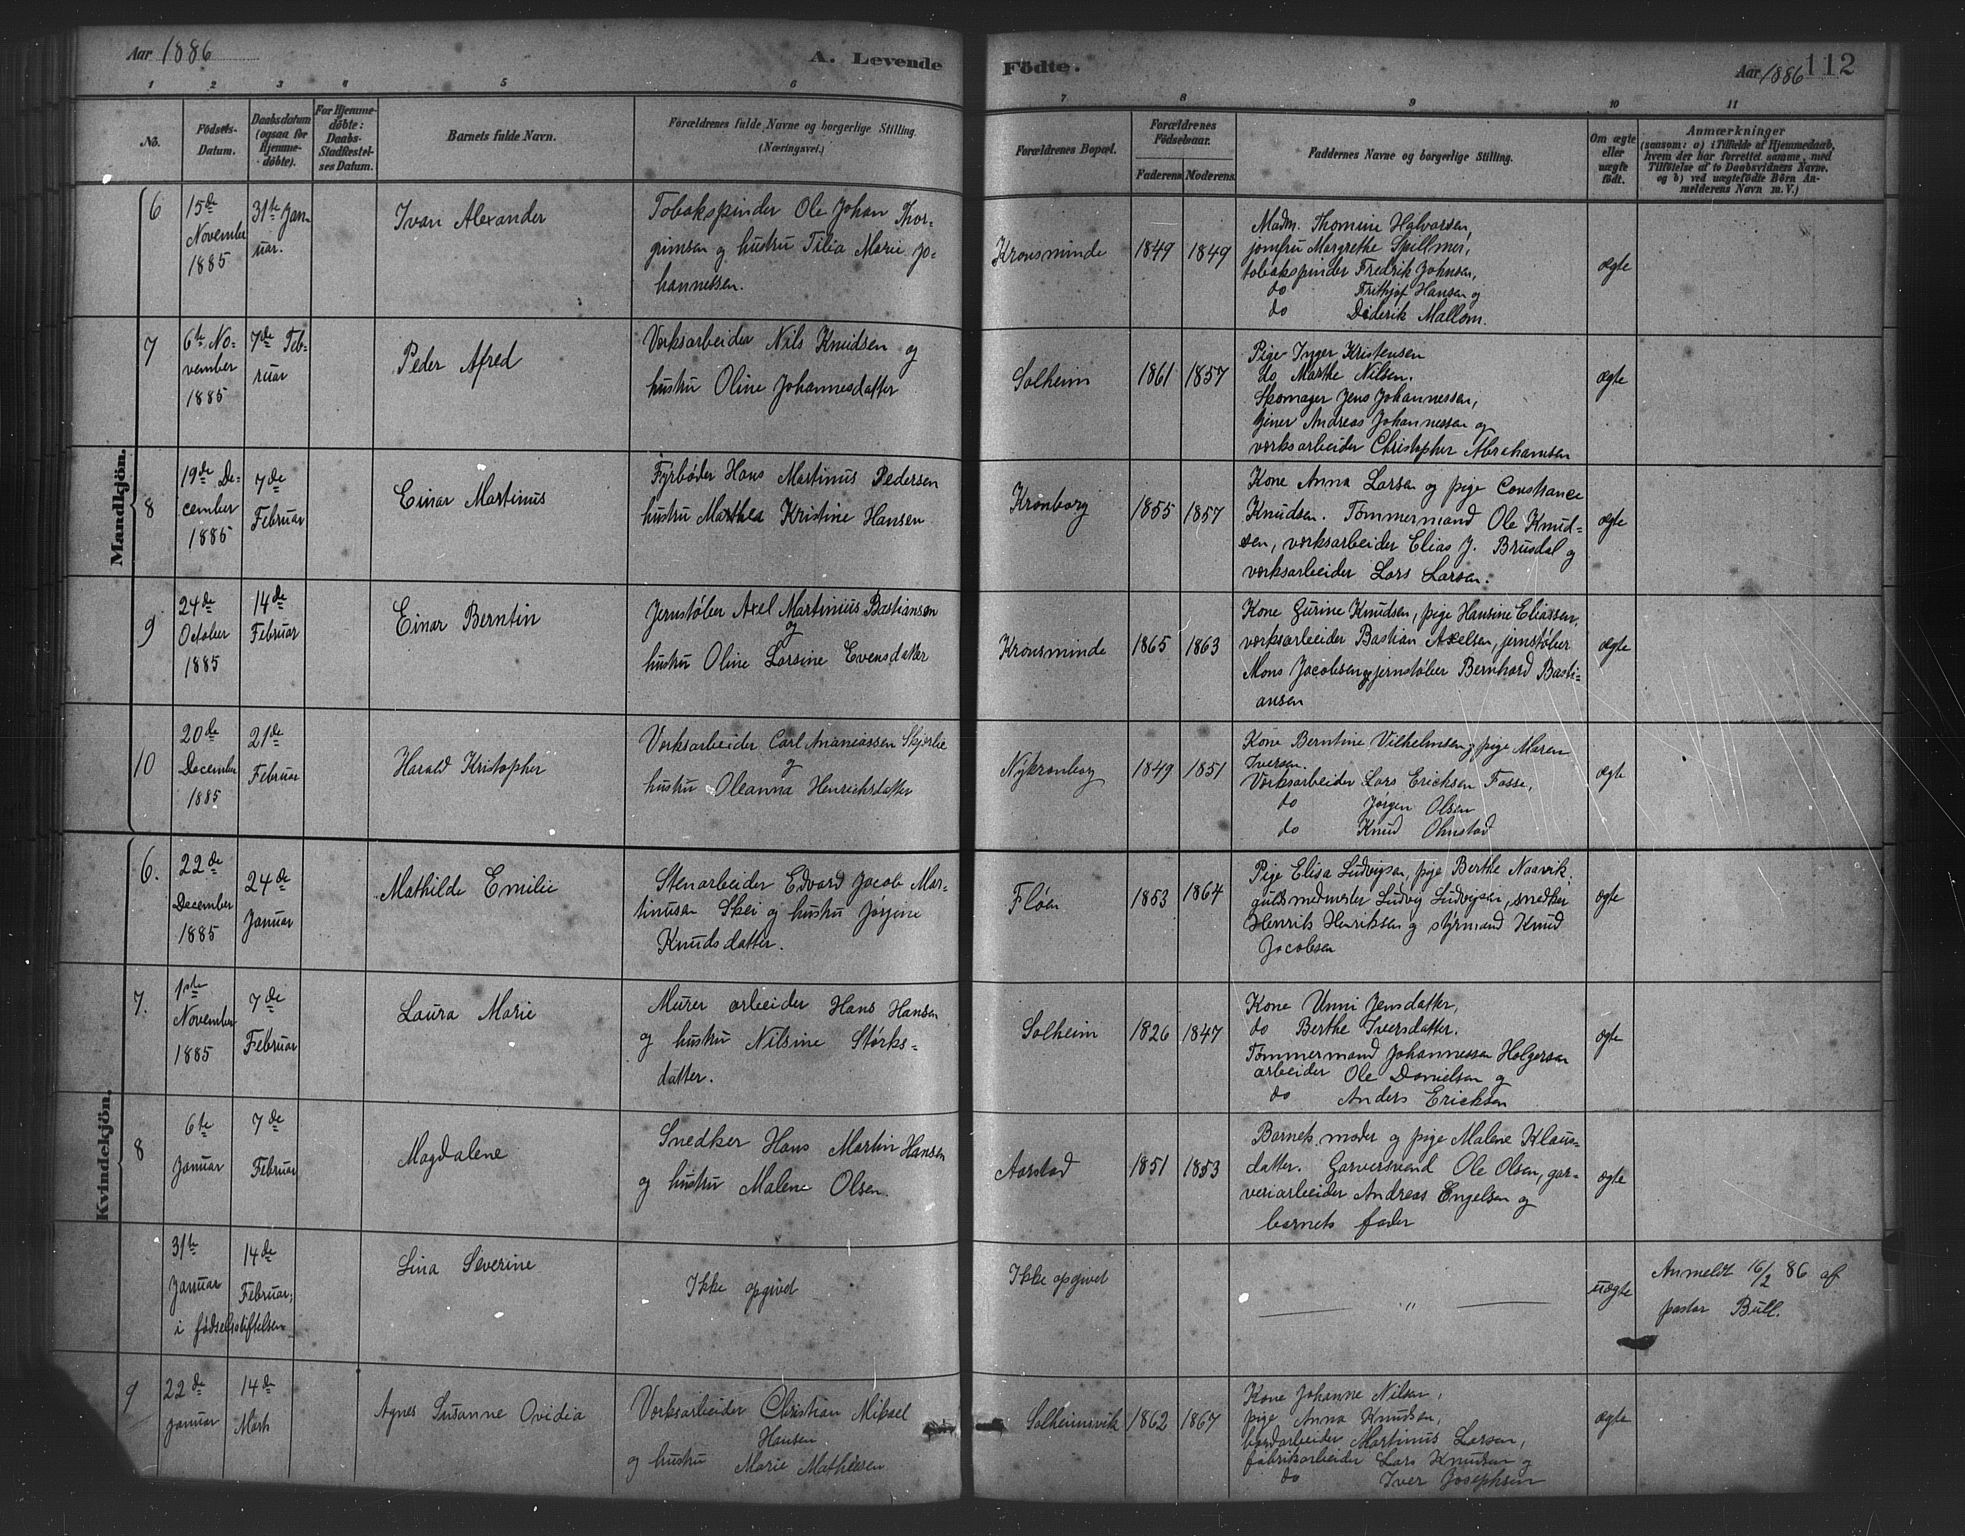 Aar 1886
A. Levende
Födte.
Aar 1886
112
1 2 3 4 5 6 7 8 9 10 11
No.
Födsels-
Datum.
Daabsdatum
(ogsaa for
Hjemme-
döbte).
For Hjemme-
döbte:
Daabs-
Stadfæstel-
ses Datum.
Barnets fulde Navn.
Forældrenes fulde Navne og borgerlige Stilling.
(Næringsvei.)
Forældrenes Bopæl.
Forældrenes
Födselsaar.
Faderens Moderens
Faddernes Navne og borgerlige Stilling.
Om ægte
eller
uægte
födt.
Anmærkninger
(saasom: a) i Tilfælde af Hjemmedaab,
hvem der har forrettet samme, med
Tilföielse af to Daabsvidners Navne.
og b) ved uægtefödte Börn An-
melderens Navn m. V.)
Mandkjön.
6
15de
November
1885
31te Jan-
uar.
Ivan Alexander
Tobakspinder Ole Johan Thor-
gimsen og hustru Tilia Marie Jo-
hannessen.
Kronsminde
1849
1849
Madm. Thomine Halvorsen,
jomfru Margrethe Spillmer,
tobakspinder Fredrik Johnsen,
do Frithjof Hansen og
do Diderik Mallom.
ægte
7
6te No-
vember
1885
7de Feb-
ruar
Peder Afred
Værksarbeider Nils Knudsen og
hustru Oline Johannesdatter
Solheim
1861
1857
Pige Inger Kristensen
do Marthe Nilsen.
Skomager Jens Johannessen,
tjener Andreas Johannessen og
værksarbeider Christopher Abrahamsen
ægte
8
19de De-
cember
1885
7de
Februar
Einar Martinus
Fyrbøder Hans Martinus Pedersen
hustru Marthea Kristine Hansen
Kronborg
1855
1857
Kone Anna Larsen og pige Constance
Knudsen. Tømmermand Ole Knud-
sen, værksarbeider Elias J. Brusdal og
værksarbeider Lars Larsen.
ægte
9
24de
October
1885
14de
Februar
Einar Berntin
Jernstøber Axel Martinius Bastiansen
og
hustru Oline Larsine Evensdatter
Kronsminde
1865
1863
Kone Gurine Knudsen, pige Hansine Eliassen,
værksarbeider Bastian Axelsen, jernstøber
Mons Jacobsen og jernstøber Bernhard Basti-
ansen
ægte
10
20de
December
1885
21de
Februar
Harald Kristopher
Værksarbeider Carl Ananiassen Skjerlie
og
hustru Oleanna Henrichsdatter
Nykronborg
1849
1851
Kone Berntine Vilhelmsen og pige Maren
Iversen.
Værksarbeider Lars Ericksen Fosse,
do Jørgen Olsen
do Knud Ohnstad
ægte
Kvindekjön.
6.
22de
December
1885
24de
Januar
Mathilde Emilie
Stenarbeider Edvard Jacob Mar-
tinusen Skei og hustru Jørgine
Knudsdatter.
Fløen
1853
1864
Pige Elisa Ludvigsen, pige Berthe Naavik,
guldsmedmester Ludvig Ludvigsen, snedker
Henrik Henriksen og styrmand Knud
Jacobsen
ægte
7.
1ste
November
1885
7de
Februar
Laura Marie
Murer arbeider Hans Hansen
og hustru Nilsine Størks-
datter.
Solheim
1826
1847
Kone Unni Jensdatter,
do Berthe Iversdatter.
Tømmermand Johannessen Holgersen
arbeider Ole Danielsen og
do Anders Ericksen
ægte
8
6te
Januar
7de
Februar
Magdalene
Snedker Hans Martin Hansen
og hustru Malene Olsen.
Aarstad
1851
1853
Barnets moder og pige Malene Klaus-
datter. Garversvend Ole Olsen, gar-
veriarbeider Andreas Engelsen og
barnets fader
ægte
31te
Januar
14de
Februar;
i fødselsstiftelsen
Lina Severine
Ikke opgivet
Ikke opgivet
"
uægte
Anmeldt 16/2 86 af
pastor Bull.
9
22de
Januar
14de
Marts
Agnes Susanne Ovidia
Værksarbeider Christian Mikael
Hansen
og hustru Marie Mathiesen
Solheimsvik
1862
1867
Kone Johanne Nilsen,
pige Anna Knudsen,
bordarbeider Martinus Larsen,
fabrikarbeider Lars Knudsen og
do Iver Josephsen
ægte